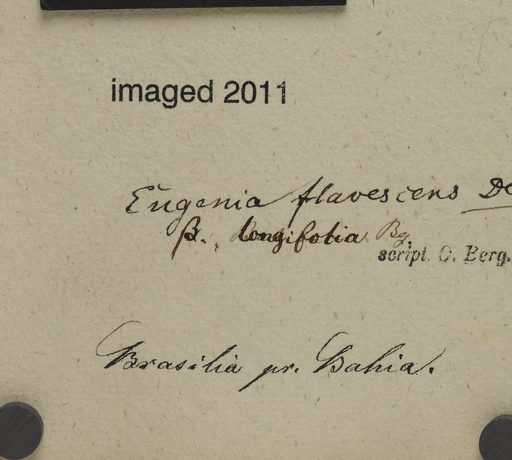 imaged 2011
Eugenia flavescens DC
β. longifolia Bg.
script. O. Berg.
Brasilia pr. Bahia.